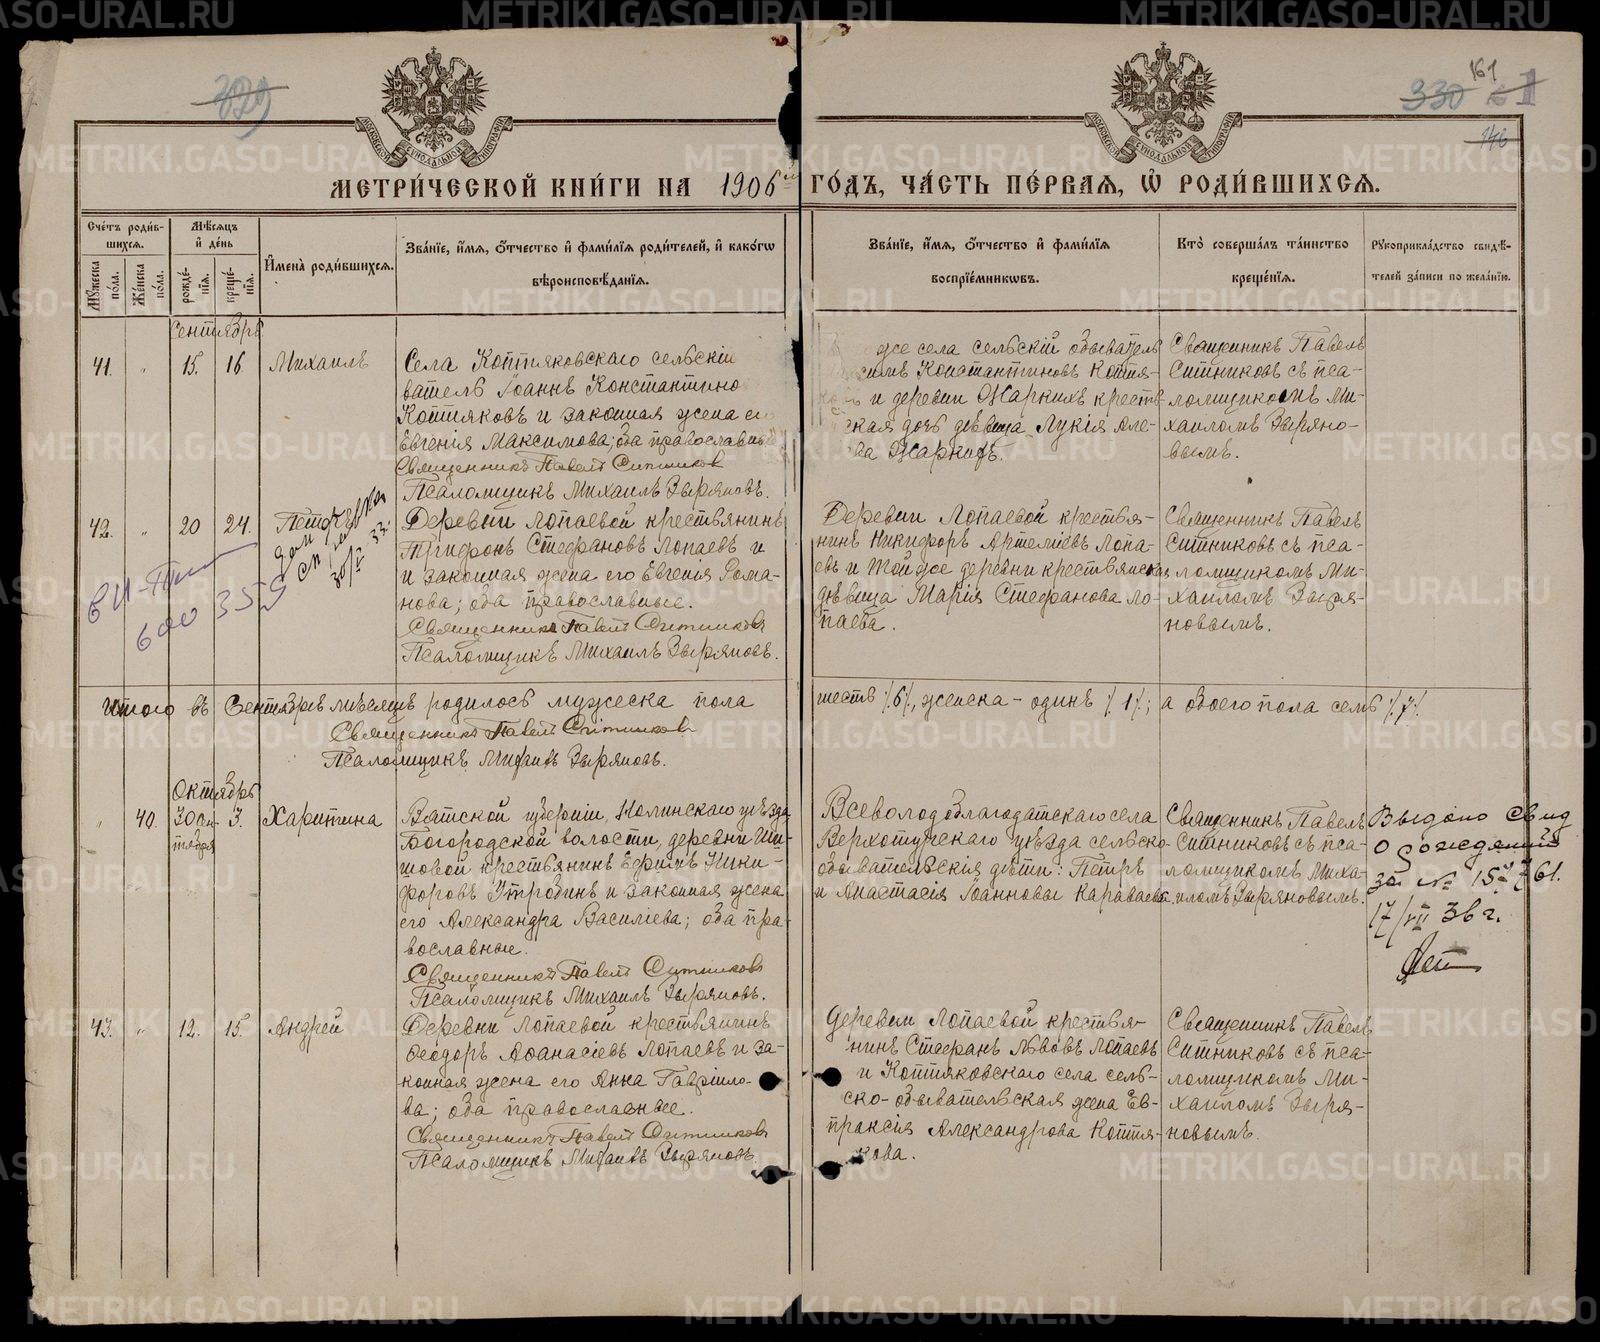 329
330
161
146
МЕТРИ́ЧЕСКОЙ КНИ́ГИ НА 1906 ГО́ДЪ, ЧА́СТЬ ПЕ́РВАЯ, Ѡ҆ РОДИ́ВШИХСЯ.
Сче́тъ роди́вшихся.
Му́жеска по́ла.
Же́нска по́ла.
Мѣ́сяцъ и҆ де́нь
рожде́нїя.
креще́нїя.
И҆мена̀ роди́вшихся.
Зва́нїе, и҆́мя, ѻ҆́тчество и҆ фами́лїя роди́телей, и҆ како́гѡ
вѣроисповѣ́данїя.
Зва́нїе, и҆́мя, ѻ҆́тчество и҆ фами́лїя
воспрїе́мникѡвъ.
Кто̀ соверша́лъ та́инство
креще́нїя.
Рꙋкоприкла́дство свидѣ́-
телей за́писи по жела́нїю.
Сентябрь
41. " 15. 16 Михаилъ
Села Коптяковскаго сельскій
ватель Іоаннъ Константино
Коптяковъ и законная жена ег
Евгенія Максимова; оба православные
Священникъ Павелъ Ситниковъ
Псаломщикъ Михаилъ Зыряновъ.
же села сельскій обыватель
Константиновъ Коптя-
и деревни Жаркихъ крестья-
ская дочь дѣвица Лукія Але-
ва Жаркихъ.
Священникъ Павелъ
Ситниковъ съ пса-
ломщикомъ Ми-
хаиломъ Зыряно-
вымъ.
42. " 20 24 Петръ
600 359
Деревни Лопаевой крестьянинъ
Трифонъ Стефановъ Лопаевъ и
и законная жена его Евгенія Рома-
нова; оба православные.
Священникъ Павелъ Ситниковъ
Псаломщикъ Михаилъ Зыряновъ.
Деревни Лопаевой крестья-
нинъ Никифоръ Артеміевъ Лопа-
евъ и той же деревни крестьянская
дѣвица Марія Стефанова Ло-
паева.
Священникъ Павелъ
Ситниковъ съ пса-
ломщикомъ Ми-
хаиломъ Зыря-
новымъ.
Итого въ Сентябрѣ мѣсяцѣ родилось мужеска пола
шесть /6/, женска - одинъ /1/; а обоего пола семь /7/.
Священникъ Павелъ Ситниковъ
Псаломщикъ Михаилъ Зыряновъ.
Октябрь
" 40. 30 сентября 3. Харитина
Вятской губерніи, Нолинскаго уѣзда
Богородской волости, деревни Ши-
шовой крестьянинъ Ефимъ Ники-
форовъ Утробинъ и законная жена
его Александра Васильева; оба пра-
вославные.
Священникъ Павелъ Ситниковъ
Псаломщикъ Михаилъ Зыряновъ.
Всеволодоблагодатскаго села
Верхотурскаго уѣзда сельско-
обывательскія дѣти: Петръ
и Анастасія Іоанновы Караваевы.
Священникъ Павелъ
Ситниковъ съ пса-
ломщикомъ Миха-
иломъ Зыряновымъ.
Выдано свид
о рождении
за №
17/VII 36 г.
43. " 12. 15. Андрей
Деревни Лопаевой крестьянинъ
Ѳеодоръ Аѳанасіевъ Лопаевъ и за-
конная жена его Анна Гаврiило-
ва; оба православные.
Священникъ Павелъ Ситниковъ
Псаломщикъ Михаилъ Зыряновъ
Деревни Лопаевой крестья-
нинъ Стефанъ Львовъ Лопаевъ
и Коптяковскаго села сель-
ско-обывательская жена Ев-
праксія Александрова Коптя-
кова.
Священникъ Павелъ
Ситниковъ съ пса-
ломщикомъ Ми-
хаиломъ Зыря-
новымъ.
METRIKI.GASO-URAL.RU